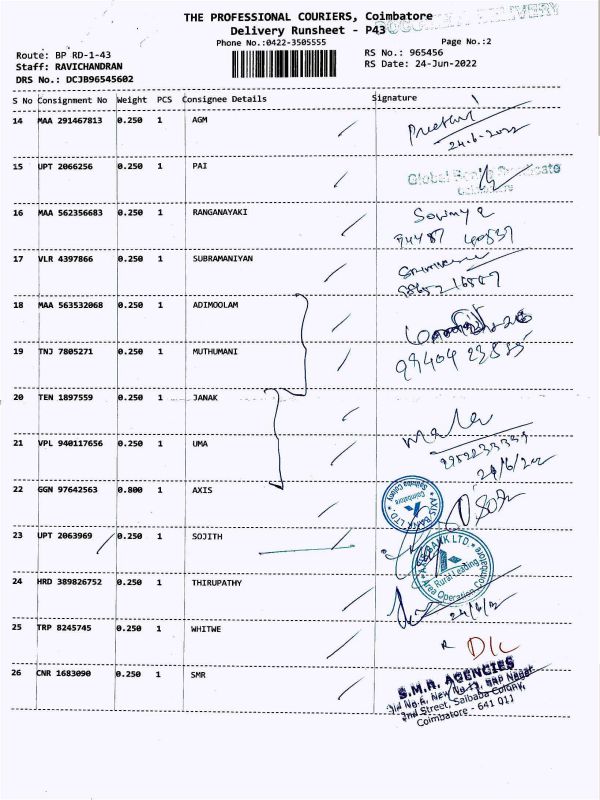 THE PROFESSIONAL COURIERS, Coimbatore
DOCUMENT DELIVERY
Delivery Runsheet - P43
Phone No.:0422-3505555
Page No.:2
Route: BP RD-1-43
RS No.: 965456
Staff: RAVICHANDRAN
RS Date: 24-Jun-2022
DRS No.: DCJB96545602
S No Consignment No Weight PCS Consignee Details Signature
14 MAA 291467813 0.250 1 AGM
24-6-2022
15 UPT 2066256 0.250 1 PAI
Global
Coimbatore
16 MAA 562356683 0.250 1 RANGANAYAKI
17 VLR 4397866 0.250 1 SUBRAMANIYAN
18 MAA 563532068 0.250 1 ADIMOOLAM
19 TNJ 7805271 0.250 1 MUTHUMANI
20 TEN 1897559 0.250 1 JANAK
Mala
21 VPL 940117656 0.250 1 UMA
22 GGN 97642563 0.800 1 AXIS
AXIS BANK LTD.
Saibaba Colony
Coimbatore
23 UPT 2063969 0.250 1 SOJITH
AXIS BANK LTD.
Rural Lending
Area Operation Coimbatore
24 HRD 389826752 0.250 1 THIRUPATHY
25 TRP 8245745 0.250 1 WHITWE
R D/L
26 CNR 1683090 0.250 1 SMR
S.M.R. AGENCIES
Old No.6, New No.13, NRP Nagar
2nd Street, Saibaba Colony,
Coimbatore - 641 011